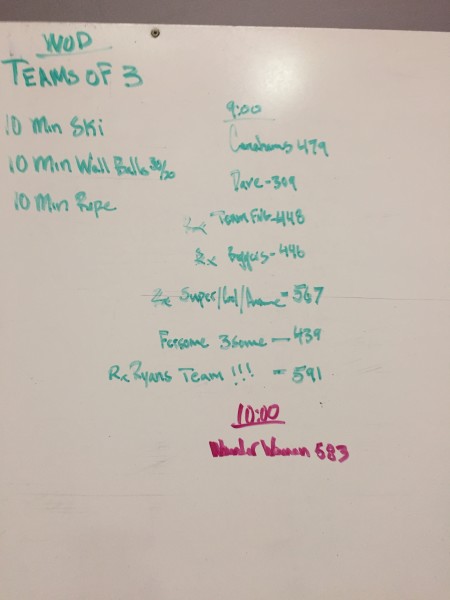 WOD
TEAMS OF 3
10 Min Ski
10 Min Wall Balls 30/20
10 Min Rope
9:00
479
Dave - 309
Rx Team 448
Rx - 446
Rx Super/ - 567
Forsome 3some - 439
Rx Ryans Team !!! = 591
10:00
Wonder Woman 583